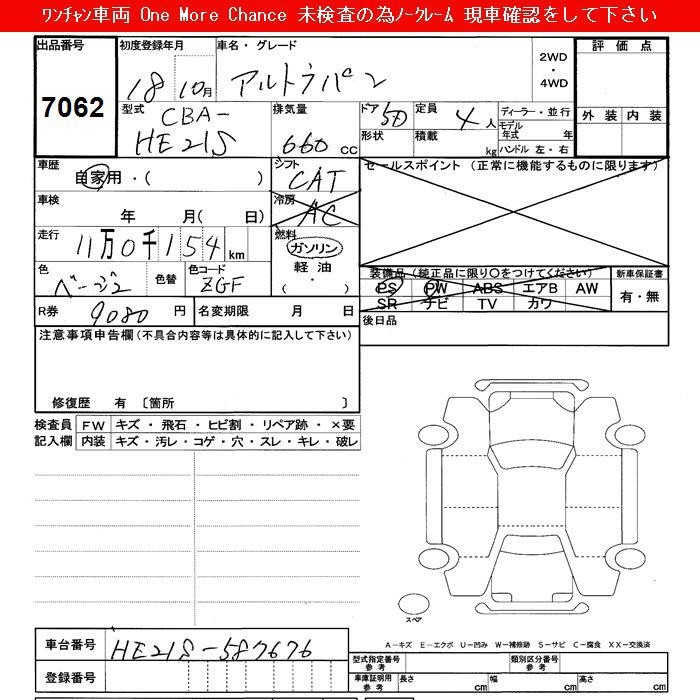 ﾜﾝﾁｬﾝ車両 One More Chance 未検査の為ﾉｰｸﾚｰﾑ 現車確認をして下さい
出品番号 初度登録年月 車名・グレード 評価点
7062 18 10月 アルトラパン 2WD・4WD
型式 CBA-HE21S 排気量 660 cc ドア 5D 定員 4人 ディーラー・並行 外装 内装
形状 積載 kg モデル年式 年
ハンドル 左・右
車歴 自家用・( ) シフト CAT セールスポイント (正常に機能するものに限ります)
車検 年 月(日) 冷房 AC
走行 11万0千154 km 燃料 ガソリン 軽油 ・( )
色 ベージュ 色替 色コード ZGF 装備品 (純正品に限り○をつけてください) 新車保証書
PS PW ABS エアB AW 有・無
SR ナビ TV カワ
R券 9080 円 名変期限 月 日 後日品
注意事項申告欄(不具合内容等は具体的に記入して下さい)
修復歴 有 〔箇所 〕
検査員 FW キズ・飛石・ヒビ割・リペア跡・×要
記入欄 内装 キズ・汚レ・コゲ・穴・スレ・キレ・破レ
スペア
車台番号 HE21S-587676
A-キズ E-エクボ U-凹み W-補修跡 S-サビ C-腐食 XX-交換済
登録番号 型式指定番号参考 類別区分番号参考
車庫証明用参考 長さ cm 幅 cm 高さ cm